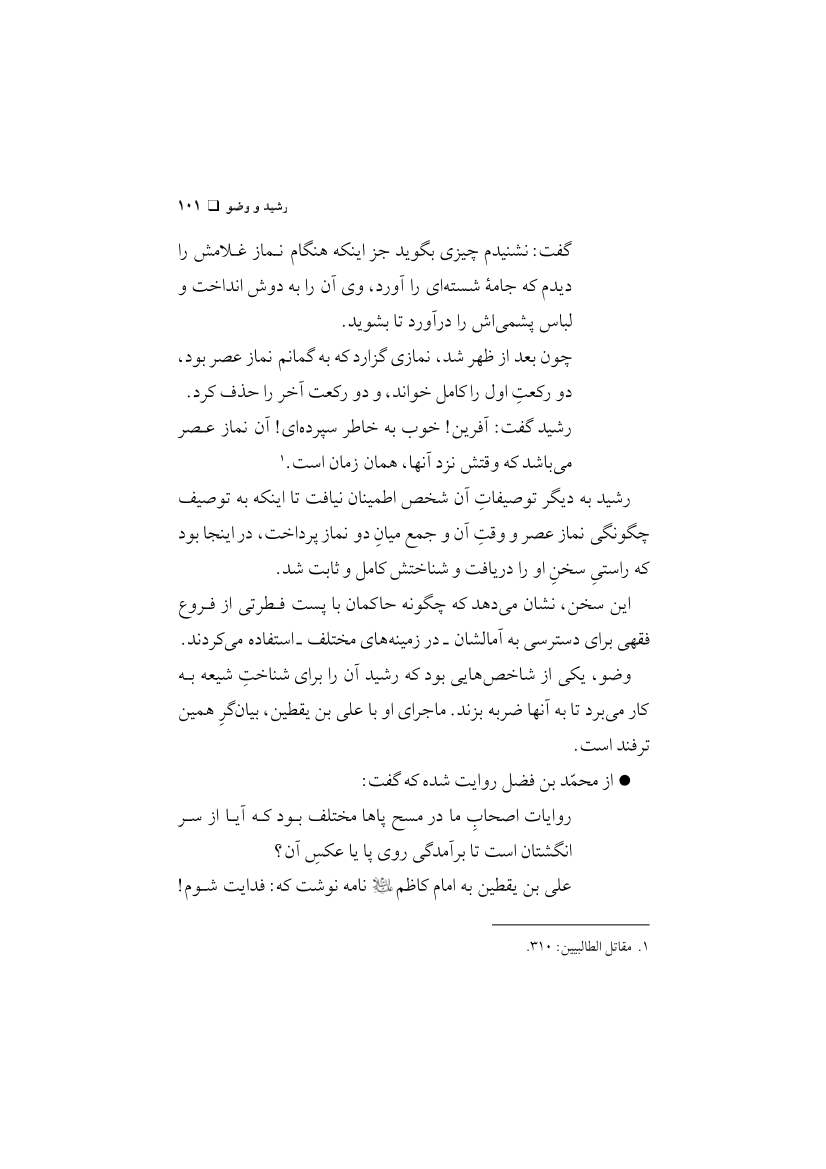 رشید و وضو ❑ ۱۰۱
گفت: نشنیدم چیزی بگوید جز اینکه هنگام نـماز غـلامش را
دیدم که جامۀ شسته‌ای را آورد، وی آن را به دوش انداخت و
لباس پشمی‌اش را درآورد تا بشوید.
چون بعد از ظهر شد، نمازی گزارد که به گمانم نماز عصر بود،
دو رکعتِ اول را کامل خواند، و دو رکعت آخر را حذف کرد.
رشید گفت: آفرین! خوب به خاطر سپرده‌ای! آن نماز عـصر
می‌باشد که وقتش نزد آنها، همان زمان است.۱
رشید به دیگر توصیفاتِ آن شخص اطمینان نیافت تا اینکه به توصیف
چگونگی نماز عصر و وقتِ آن و جمع میانِ دو نماز پرداخت، در اینجا بود
که راستیِ سخنِ او را دریافت و شناختش کامل و ثابت شد.
این سخن، نشان می‌دهد که چگونه حاکمان با پست فـطرتی از فـروع
فقهی برای دسترسی به آمالشان ـ در زمینه‌های مختلف ـ استفاده می‌کردند.
وضو، یکی از شاخص‌هایی بود که رشید آن را برای شناختِ شیعه بـه
کار می‌برد تا به آنها ضربه بزند. ماجرای او با علی بن یقطین، بیان‌گرِ همین
ترفند است.
● از محمّد بن فضل روایت شده که گفت:
روایات اصحابِ ما در مسح پاها مختلف بـود کـه آیـا از سـر
انگشتان است تا برآمدگی روی پا یا عکسِ آن؟
علی بن یقطین به امام کاظم نامه نوشت که: فدایت شـوم!
۱. مقاتل الطالبیین: ۳۱۰.